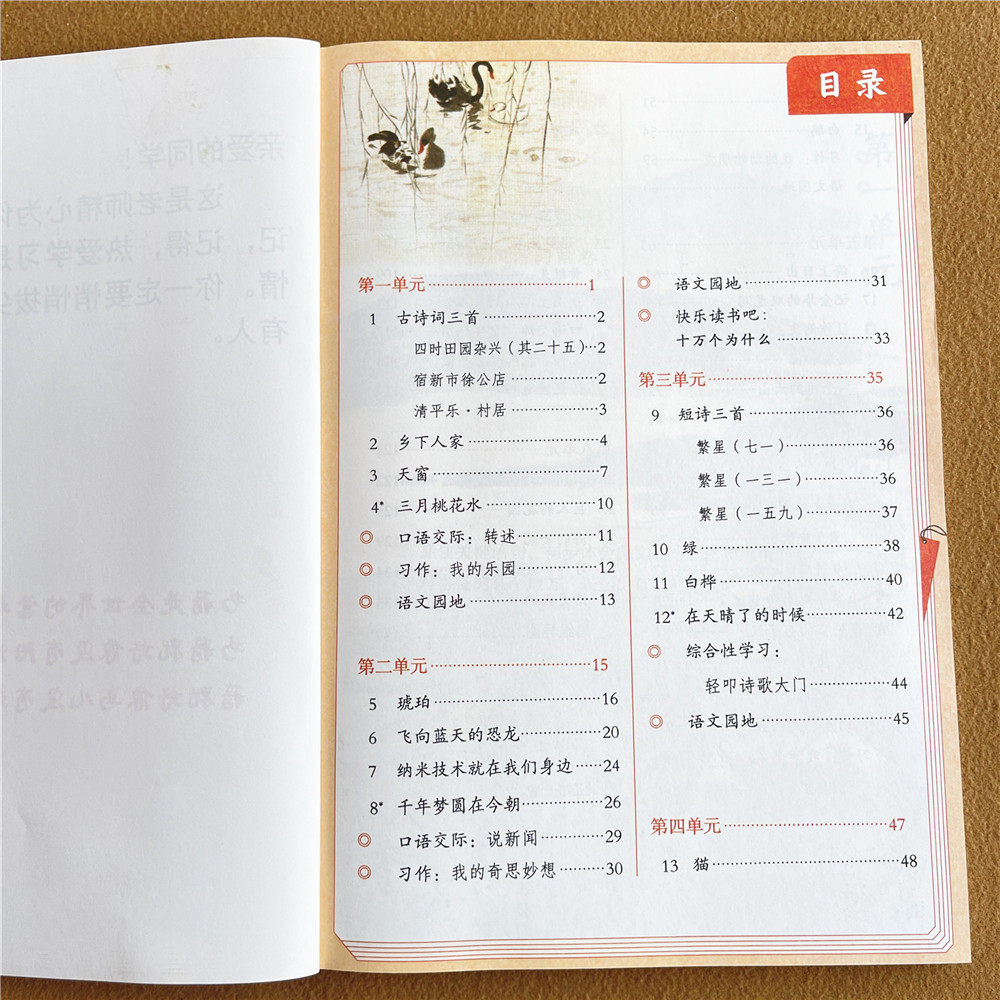 目录
第一单元……1
1 古诗词三首……2
四时田园杂兴（其二十五）…2
宿新市徐公店……2
清平乐·村居……3
2 乡下人家……4
3 天窗……7
4* 三月桃花水……10
口语交际：转述……11
习作：我的乐园……12
语文园地……13
第二单元……15
5 琥珀……16
6 飞向蓝天的恐龙……20
7 纳米技术就在我们身边……24
8* 千年梦圆在今朝……26
口语交际：说新闻……29
习作：我的奇思妙想……30
语文园地……31
快乐读书吧：
十万个为什么……33
第三单元……35
9 短诗三首……36
繁星（七一）……36
繁星（一三一）……36
繁星（一五九）……37
10 绿……38
11 白桦……40
12* 在天晴了的时候……42
综合性学习：
轻叩诗歌大门……44
语文园地……45
第四单元……47
13 猫……48